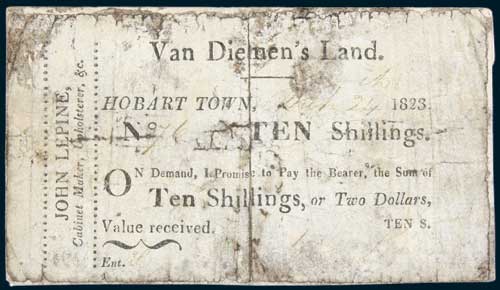 JOHN LEPINE,
Cabinet Maker, Upholsterer, &c.
Van Diemen's Land.
HOBART TOWN, 24 1823.
No. TEN Shillings.
ON Demand, I Promise to Pay the Bearer, the Sum of
Ten Shillings, or Two Dollars,
Value received. TEN S.
Ent.